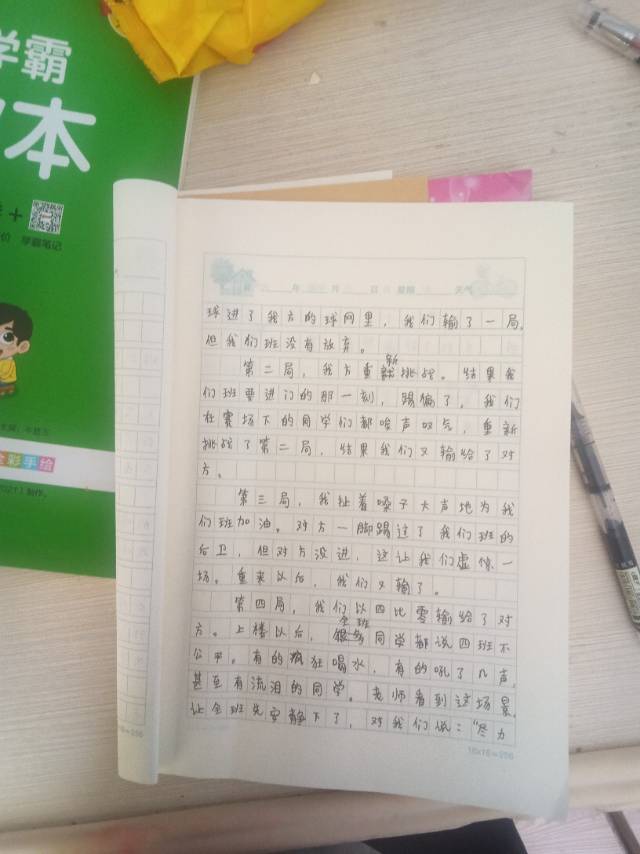 学霸
本
学霸笔记
全彩手绘
年 月 日 星期 天气
球进了我方的球网里，我们输了一局。
但我们班没有放弃。
第二局，我方重新挑战。结果我
们班要进门的那一刻，踢偏了，我们
在赛场下的同学们都唉声叹气，重新
挑战了第二局，结果我们又输给了对
方。
第三局，我扯着嗓子大声地为我
们班加油。对方一脚踢过了我们班的
后卫，但对方没进，这让我们虚惊一
场。重来以后，我们又输了。
第四局，我们以四比零输给了对
方。上楼以后，全班同学都说四班不
公平。有的疯狂喝水，有的吼了几声，
甚至有流泪的同学。老师看到这场景，
让全班先安静下了，对我们说：“尽力
16×16=256